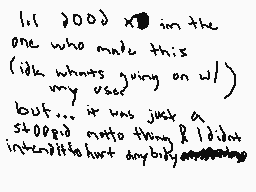 lil 2002 x im the
one who made this
(idk whats going on w/
my user)
but... it was just a
stoopid motto thing & I didnt
intend it to hurt anybody